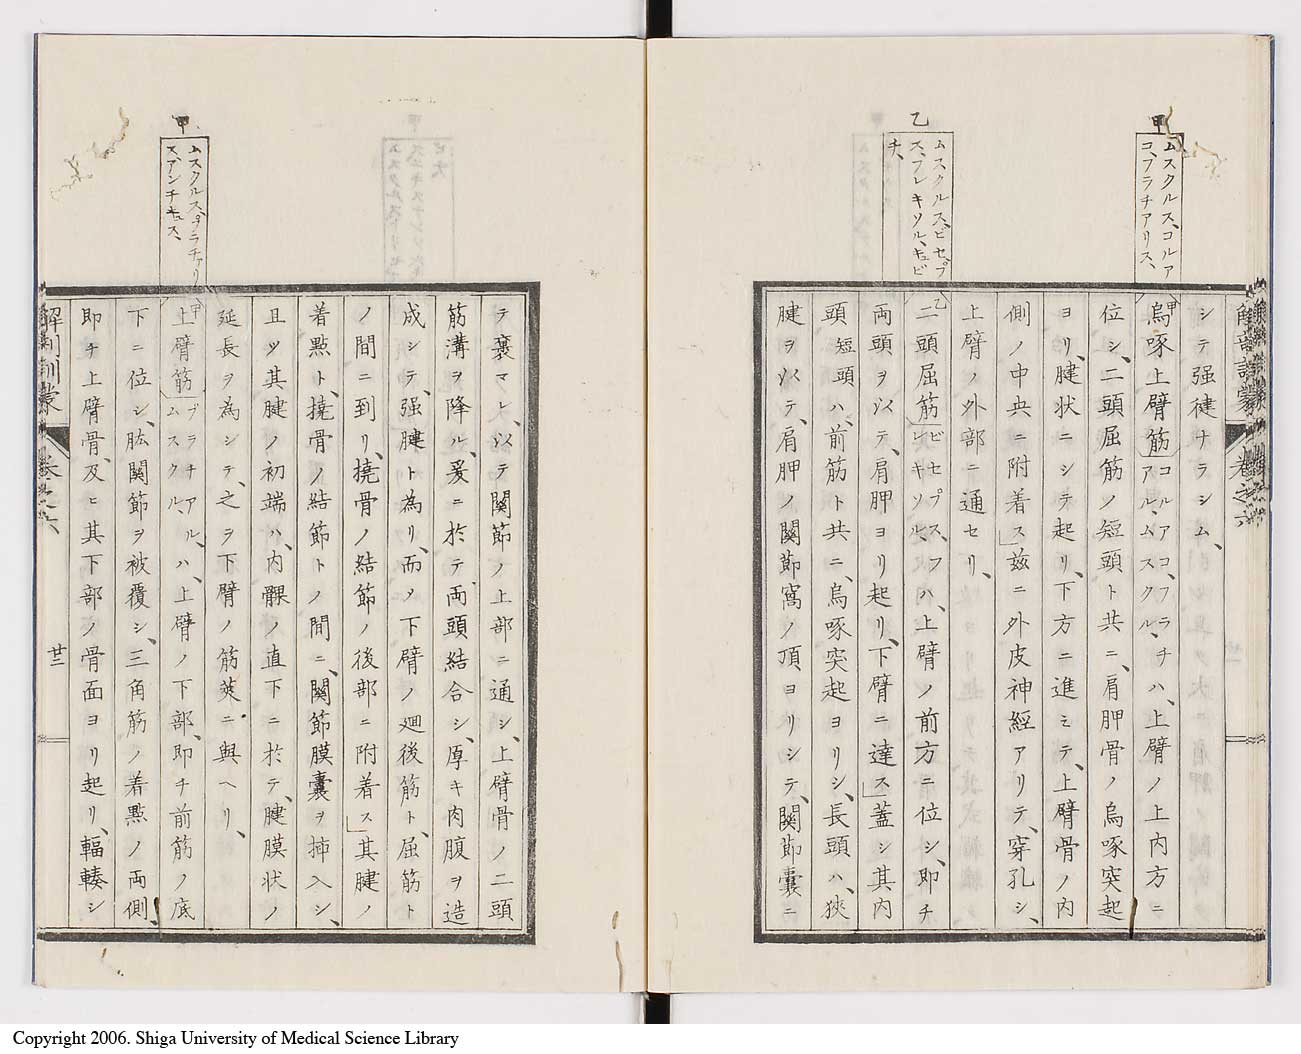 甲
ムスクルス、コルア
コ、フラチアリス、
乙
ムスクルス、ビセプ
ス、フレキソル、キュビ
チ、
シテ强健ナラシム、
甲
烏啄上臂筋コルアコ、フラチ
アル、ムスクル、ハ、上臂ノ上内方ニ
位シ、二頭屈筋ノ短頭ト共ニ、肩胛骨ノ烏啄突起
ヨリ、腱状ニシテ起リ、下方ニ進ミテ、上臂骨ノ内
側ノ中央ニ附着ス」茲ニ外皮神經アリテ、穿孔シ、
上臂ノ外部ニ通セリ、
乙
二頭屈筋ビセプス、フ
レキソル、ハ、上臂ノ前方ニ位シ、即チ
両頭ヲ以テ、肩胛ヨリ起リ、下臂ニ達ス」蓋シ其内
頭短頭ハ、前筋ト共ニ、烏啄突起ヨリシ、長頭ハ、狹
腱ヲ以テ、肩胛ノ関節窩ノ頂ヨリシテ、関節囊ニ
甲
ムスクルス、ブラチアリ
ス、アンチキュス、
テ裹マレ、以テ関節ノ上部ニ通シ、上臂骨ノ二頭
筋溝ヲ降ル、爰ニ於テ両頭結合シ、厚キ肉腹ヲ造
成シテ、强腱ト為リ、而ノ下臂ノ廻後筋ト、屈筋ト
ノ間ニ到リ、撓骨ノ結節ノ後部ニ附着ス」其腱ノ
着點ト、撓骨ノ結節トノ間ニ、関節膜囊ヲ挿入シ、
且ツ其腱ノ初端ハ、内髁ノ直下ニ於テ、腱膜状ノ
延長ヲ為シテ、之ヲ下臂ノ筋莢ニ與ヘリ、
甲
上臂筋ブラチアル、
ムスクル、ハ、上臂ノ下部、即チ前筋ノ底
下ニ位シ、肱関節ヲ被覆シ、三角筋ノ着點ノ両側、
即チ上臂骨、及ヒ其下部ノ骨面ヨリ起リ、輻輳シ
卷之六
廿三
Copyright 2006. Shiga University of Medical Science Library